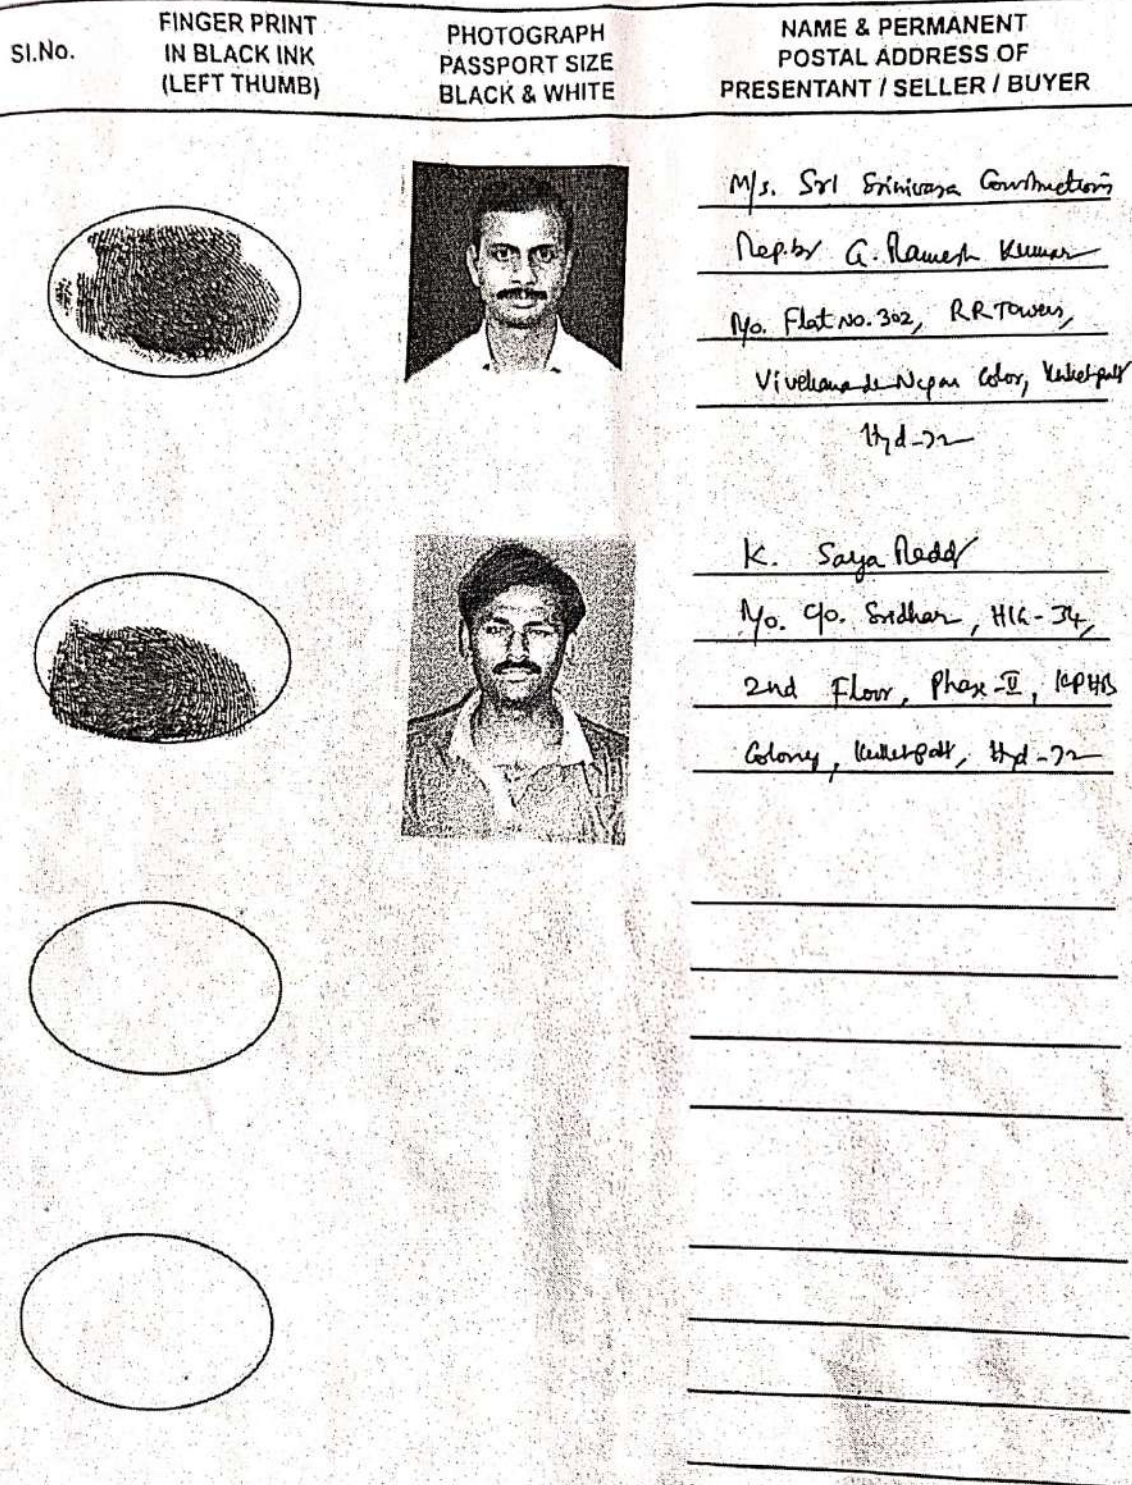 Sl.No.
FINGER PRINT
IN BLACK INK
(LEFT THUMB)
PHOTOGRAPH
PASSPORT SIZE
BLACK & WHITE
NAME & PERMANENT
POSTAL ADDRESS OF
PRESENTANT / SELLER / BUYER
M/s. Sri Srinivasa Constructions
Rep.by G. Ramesh Kumar
R/o. Flat No. 302, RR Towers,
Hyd-72
K. Saya Reddy
R/o. C/o. Sridhar, HIG-34,
2nd Floor, Phase-II, KPHB
Colony, Hyd-72